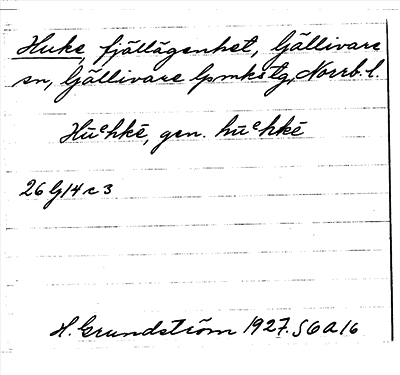 Huke, fjällägenhet, Gällivare
sn, Gällivare lpmkstg, Norrb. l.
Hūᵉhkē, gen. hūᵉhkē
26 G/4 c 3
H. Grundström 1927. S 6 a 16